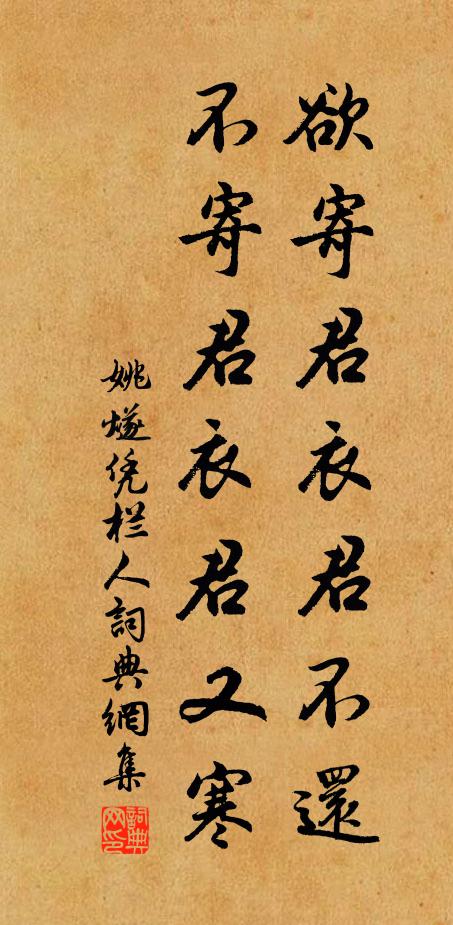 欲寄君衣君不還
不寄君衣君又寒
姚燧凭栏人詞典網集
詞典网印